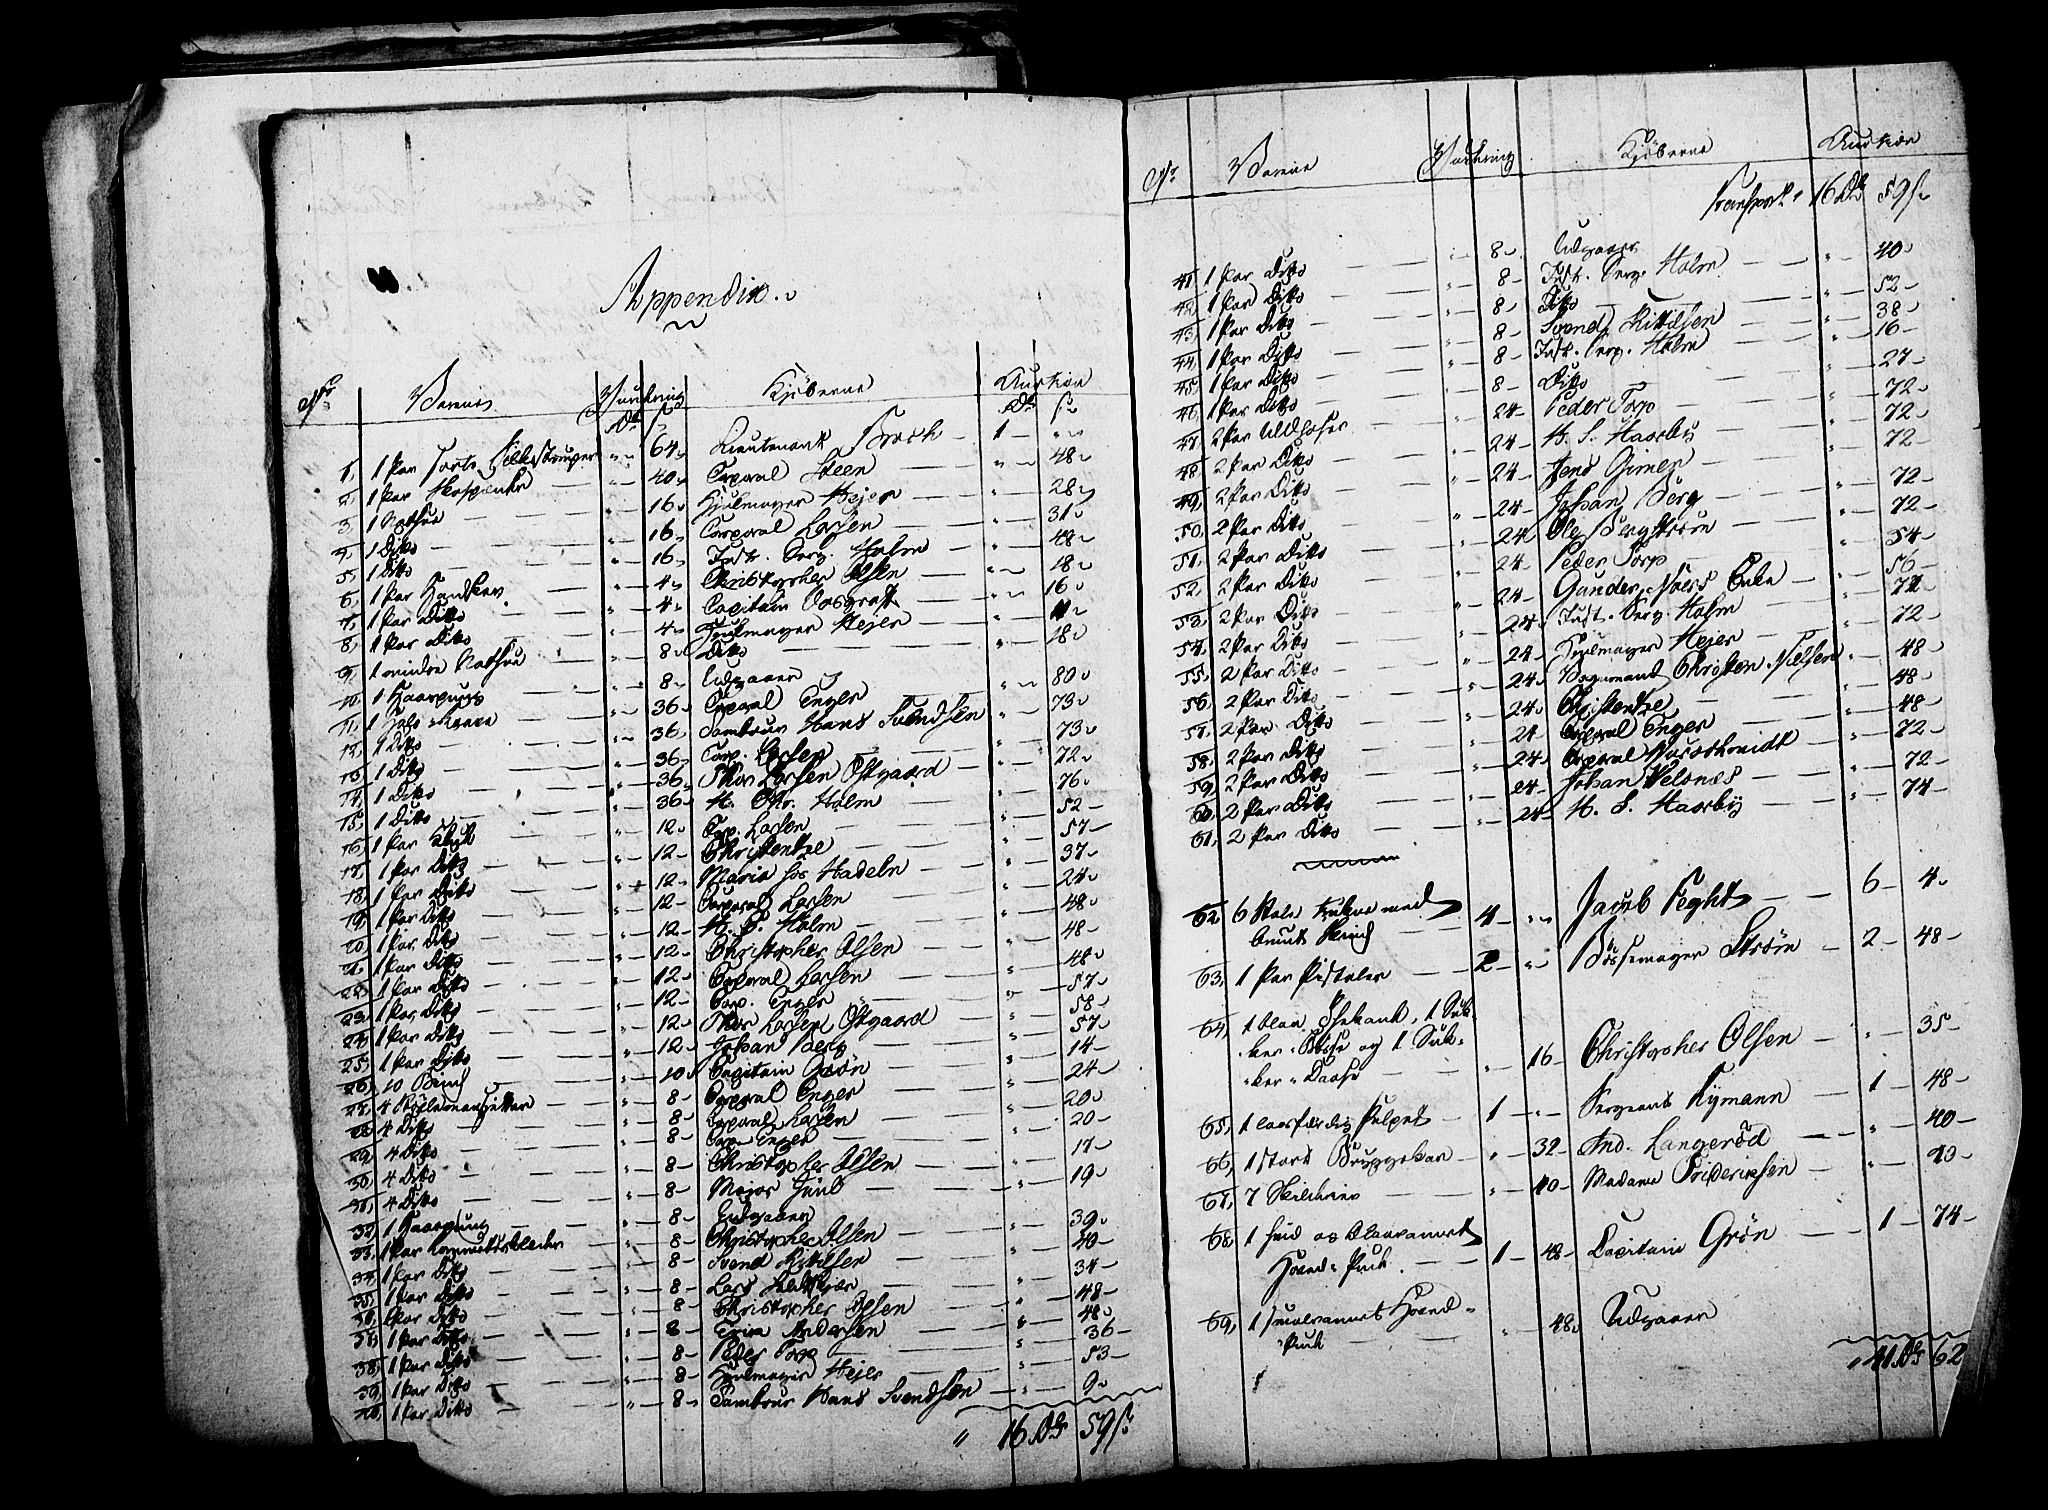 Appendix
No Varene Vurdering Kjöberne Auction
Dr s Dr s
1, 1 Par sorte Silkestrømper " 64 Lieutenant Broch 1 "
2, 1 Par Skospænder " 40 Corporal Steen " 48
3, 1 Nathue " 16 Hjulmager Hejer " 28
4, 1 Ditto " 16 Corporal Larsen " 31
5, 1 Ditto " 16 Inst. Serg. Holm " 48
6, 1 Par Handsker " 4 Christopher Olsen " 18
7, 1 Par Ditto " 4 Capitain " 16
8, 1 Par Ditto " 4 Hjulmager Hejer " 11
9, 1 mindre Nathue " 8 Ditto " 18
10, 1 Haarpung " 8 Udgaaer
11, 1 " 36 Corporal Enger " 80
12, 1 Ditto " 36 Tambour Hans Svendsen " 73
13, 1 Ditto " 36 Corp. Larsen " 73
14, 1 Ditto " 36 Thor Larsen Ostgaard " 72
15, 1 Ditto " 36 H. Chr. Holm " 76
16, 1 Par " 12 Corp. Larsen " 52
17, 1 Par Ditto " 12 Christentze " 57
18, 1 Par Ditto " 12 Maria hos Hadeln " 37
19, 1 Par Ditto " 12 Corporal Larsen " 24
20, 1 Par Ditto " 12 H. C. Holm " 48
21, 1 Par Ditto " 12 Christopher Olsen " 48
22, 1 Par Ditto " 12 Corporal Larsen " 48
23, 1 Par Ditto " 12 Corp. Enger " 57
24, 1 Par Ditto " 12 Thor Larsen Ostgaard " 58
25, 1 Par Ditto " 12 Johan Berg " 57
26, 10 " 10 Capitain Grøn " 14
27, 4 " 8 Corporal Enger " 24
28, 4 Ditto " 8 Corporal Larsen " 20
29, 4 Ditto " 8 Corp. Enger " 20
30, 4 Ditto " 8 Christopher Olsen " 17
31, 4 Ditto " 8 Major " 19
32, 1 Haarpung " 8 Udgaaer
33, 1 Par " 8 Christopher Olsen " 39
34, 1 Par Ditto " 8 Svend Kittilsen " 40
35, 1 Par Ditto " 8 Lars " 34
36, 1 Par Ditto " 8 Christopher Olsen " 48
37, 1 Par Ditto " 8 Andersen " 48
38, 1 Par Ditto " 8 Peder Torp " 36
39, 1 Par Ditto " 8 Hjulmager Hejer " 53
40, 1 Par Ditto " 8 Tambour Hans Svendsen " 9
" 16 Dr 59 s
No Varene Vurdering Kjöberne Auction
Transport " 16 Dr 59 s
41, 1 Par Ditto " 8 Udgaaer
42, 1 Par Ditto " 8 Inst. Serg. Holm " 40
43, 1 Par Ditto " 8 Ditto " 52
44, 1 Par Ditto " 8 Svend Kittilsen " 38
45, 1 Par Ditto " 8 Inst. Serg. Holm " 16
46, 1 Par Ditto " 8 Ditto " 27
47, 2 Par Uldhoser " 24 Peder Torp " 72
48, 2 Par Ditto " 24 H. S. Haseby " 72
49, 2 Par Ditto " 24 Jens Gimer " 72
50, 2 Par Ditto " 24 Johan Berg " 72
51, 2 Par Ditto " 24 Ole Bergstrøm " 72
52, 2 Par Ditto " 24 Peder Torp " 54
53, 2 Par Ditto " 24 Gunder Enke " 56
54, 2 Par Ditto " 24 Inst. Serg. Holm " 72
55, 2 Par Ditto " 24 Hjulmager Hejer " 72
56, 2 Par Ditto " 24 Christen Nielsen " 48
57, 2 Par Ditto " 24 Christentze " 48
58, 2 Par Ditto " 24 Corporal Enger " 48
59, 2 Par Ditto " 24 Corporal " 72
60, 2 Par Ditto " 24 Johan " 72
61, 2 Par Ditto " 24 H. S. Hasseby " 74
62, 6 Stole trukne med
brunt Skind 4 " Jacob Feght 6 4
63, 1 Par Pistoler 2 " Bössemager Strøm 2 48
64, 1 blaa Thekande, 1 Suk-
ker-Bösse og 1 Suk-
ker-Daase " 16 Christopher Olsen " 35
65, 1 Pulpet 1 " Sergeant Rymann 1 48
66, 1 stort Bryggekar " 32 And. Langeröd " 40
67, 7 Skilderier " 40 Madame Frideriksen " 90
68, 1 hvid og blaamalet
1 48 Capitain Grön 1 74
69, 1
" 48 Udgaaer
" 41 Dr 62